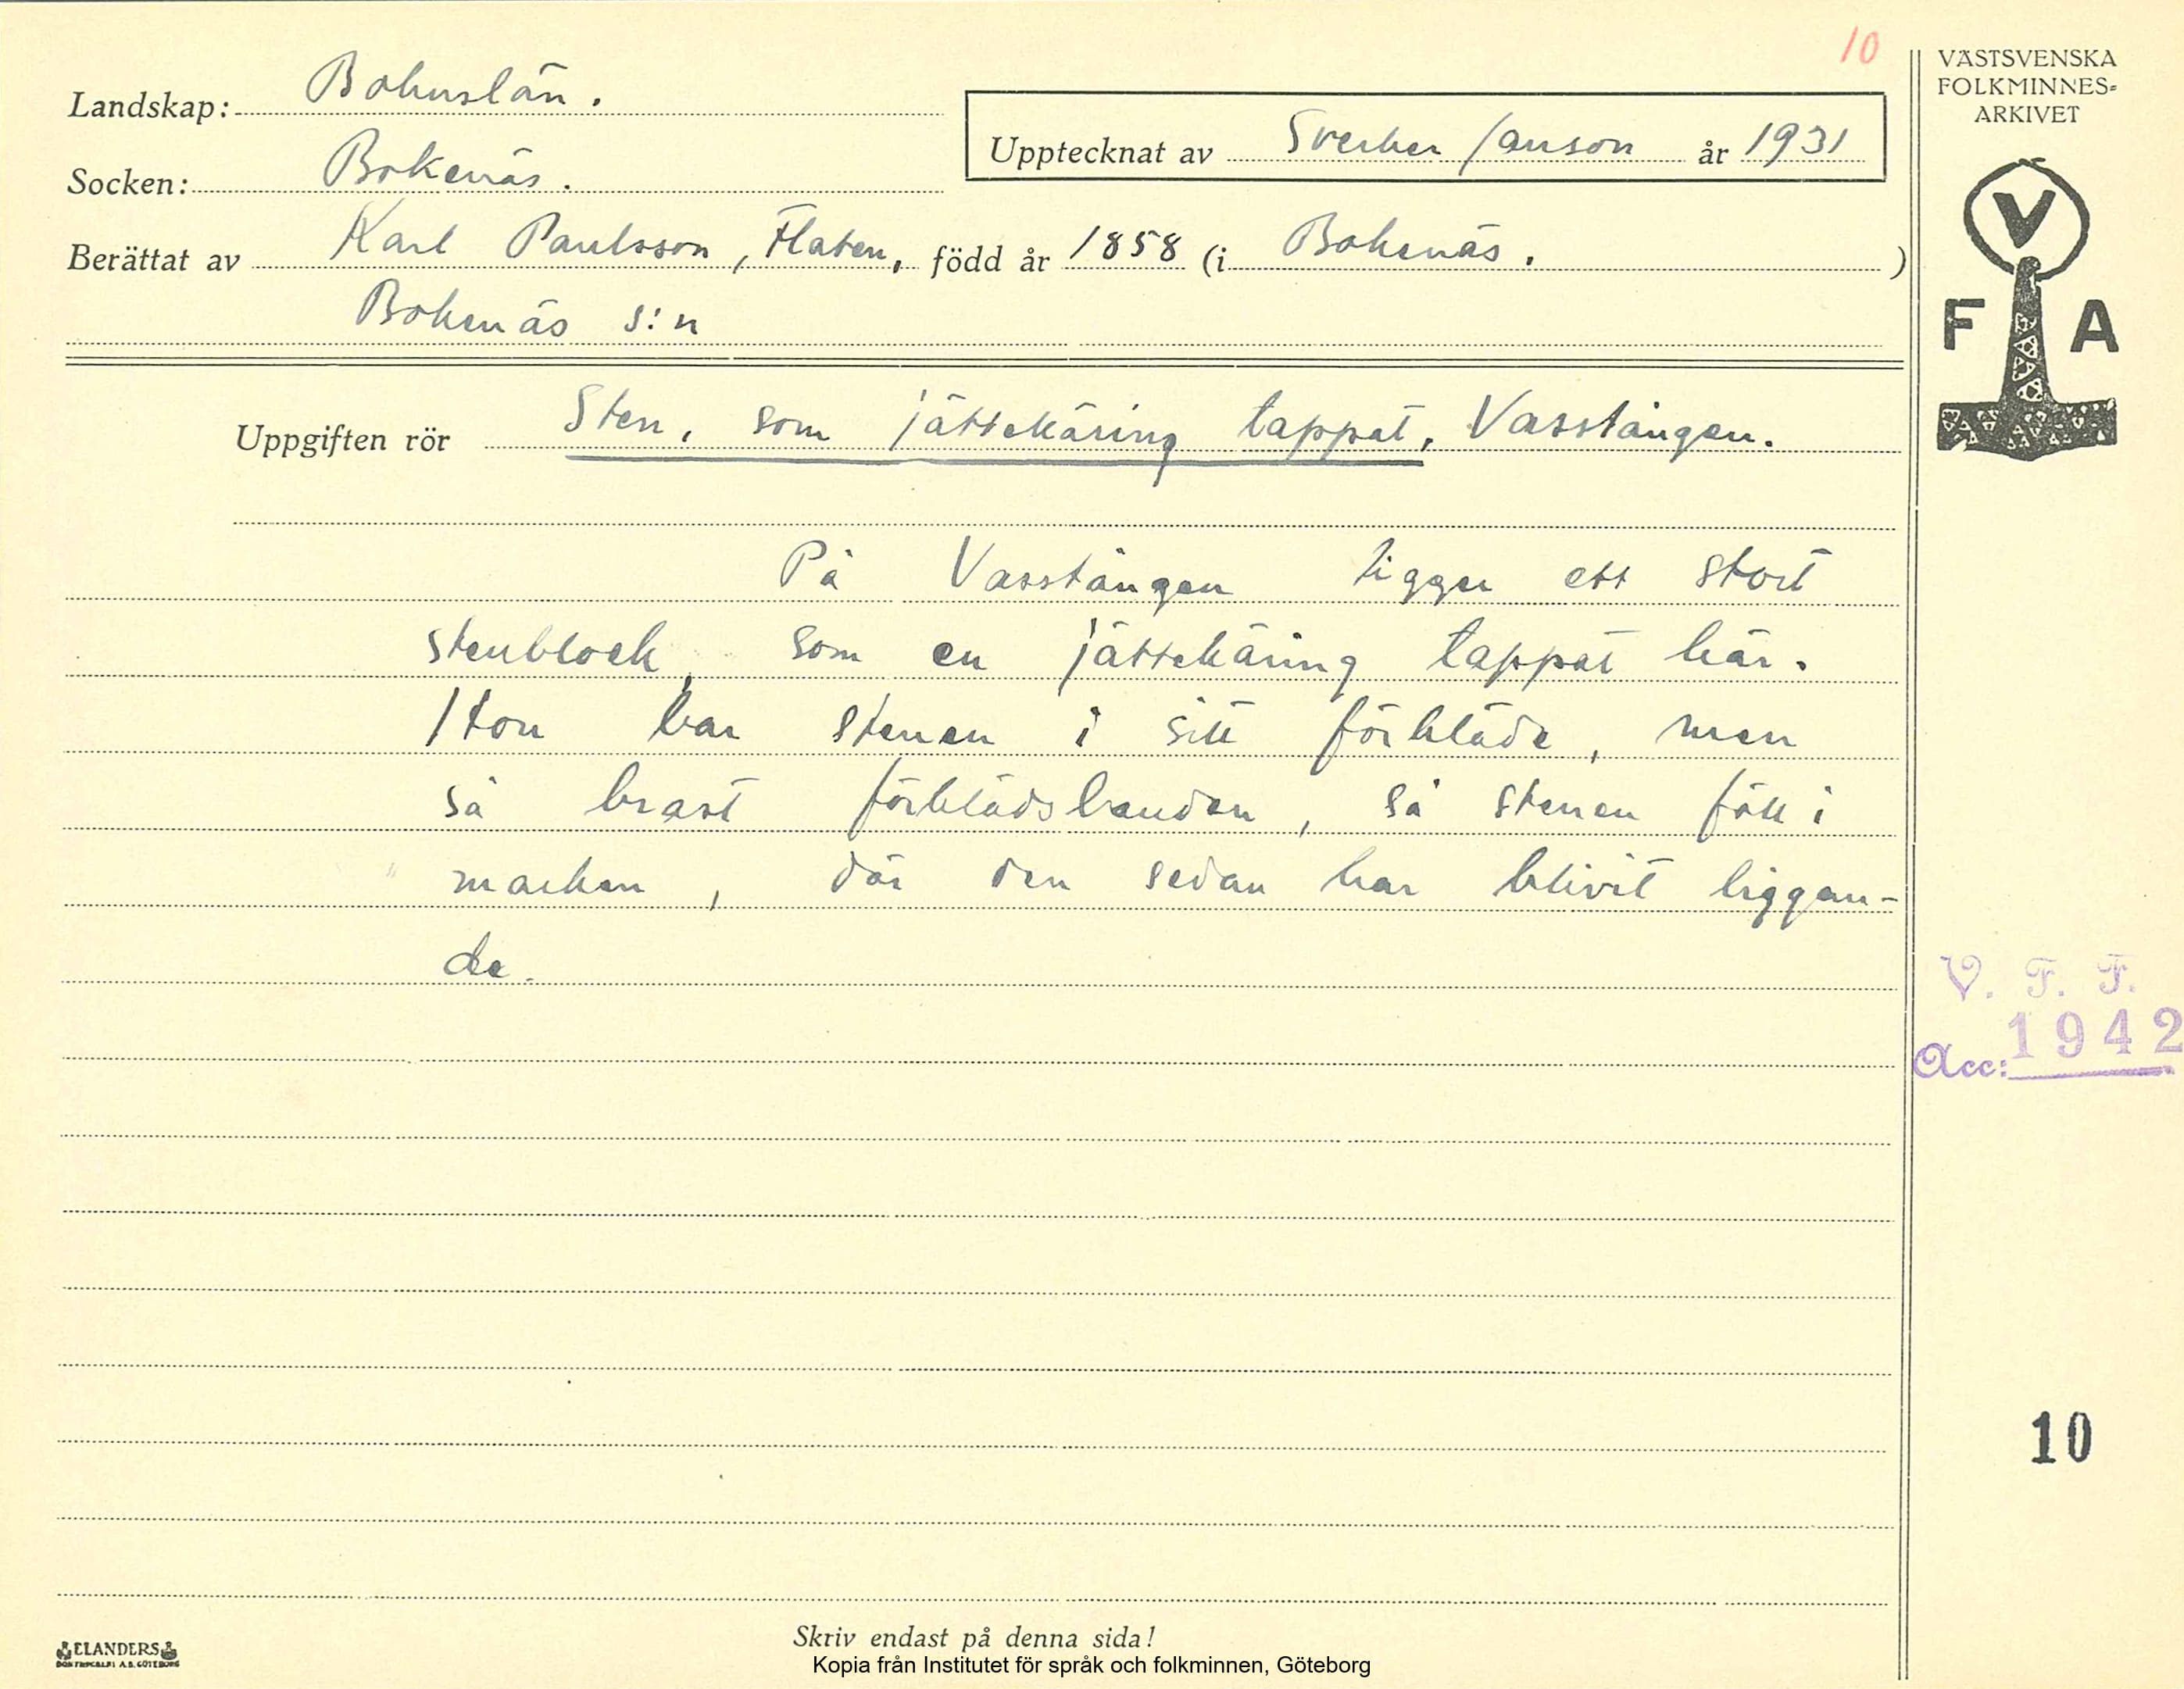 10
Landskap: Bohuslän.
Socken: Bokenäs.
Upptecknat av Sverker Janson år 1931
Berättat av Karl Paulsson, Flaten, född år 1858 (i Bokenäs.)
Bokenäs s:n
Uppgiften rör Sten, som jättekäring tappat, Vasstången.
På Vasstången ligger ett stort
stenblock, som en jättekäring tappat här.
Hon bar stenen i sitt förkläde, men
så brast förklädsbanden, så stenen föll i
marken, där den sedan har blivit liggan-
de.
VÄSTSVENSKA
FOLKMINNES-
ARKIVET
V
F A
V. F. F.
Acc: 1942
10
Skriv endast på denna sida!
ELANDERS
Kopia från Institutet för språk och folkminnen, Göteborg